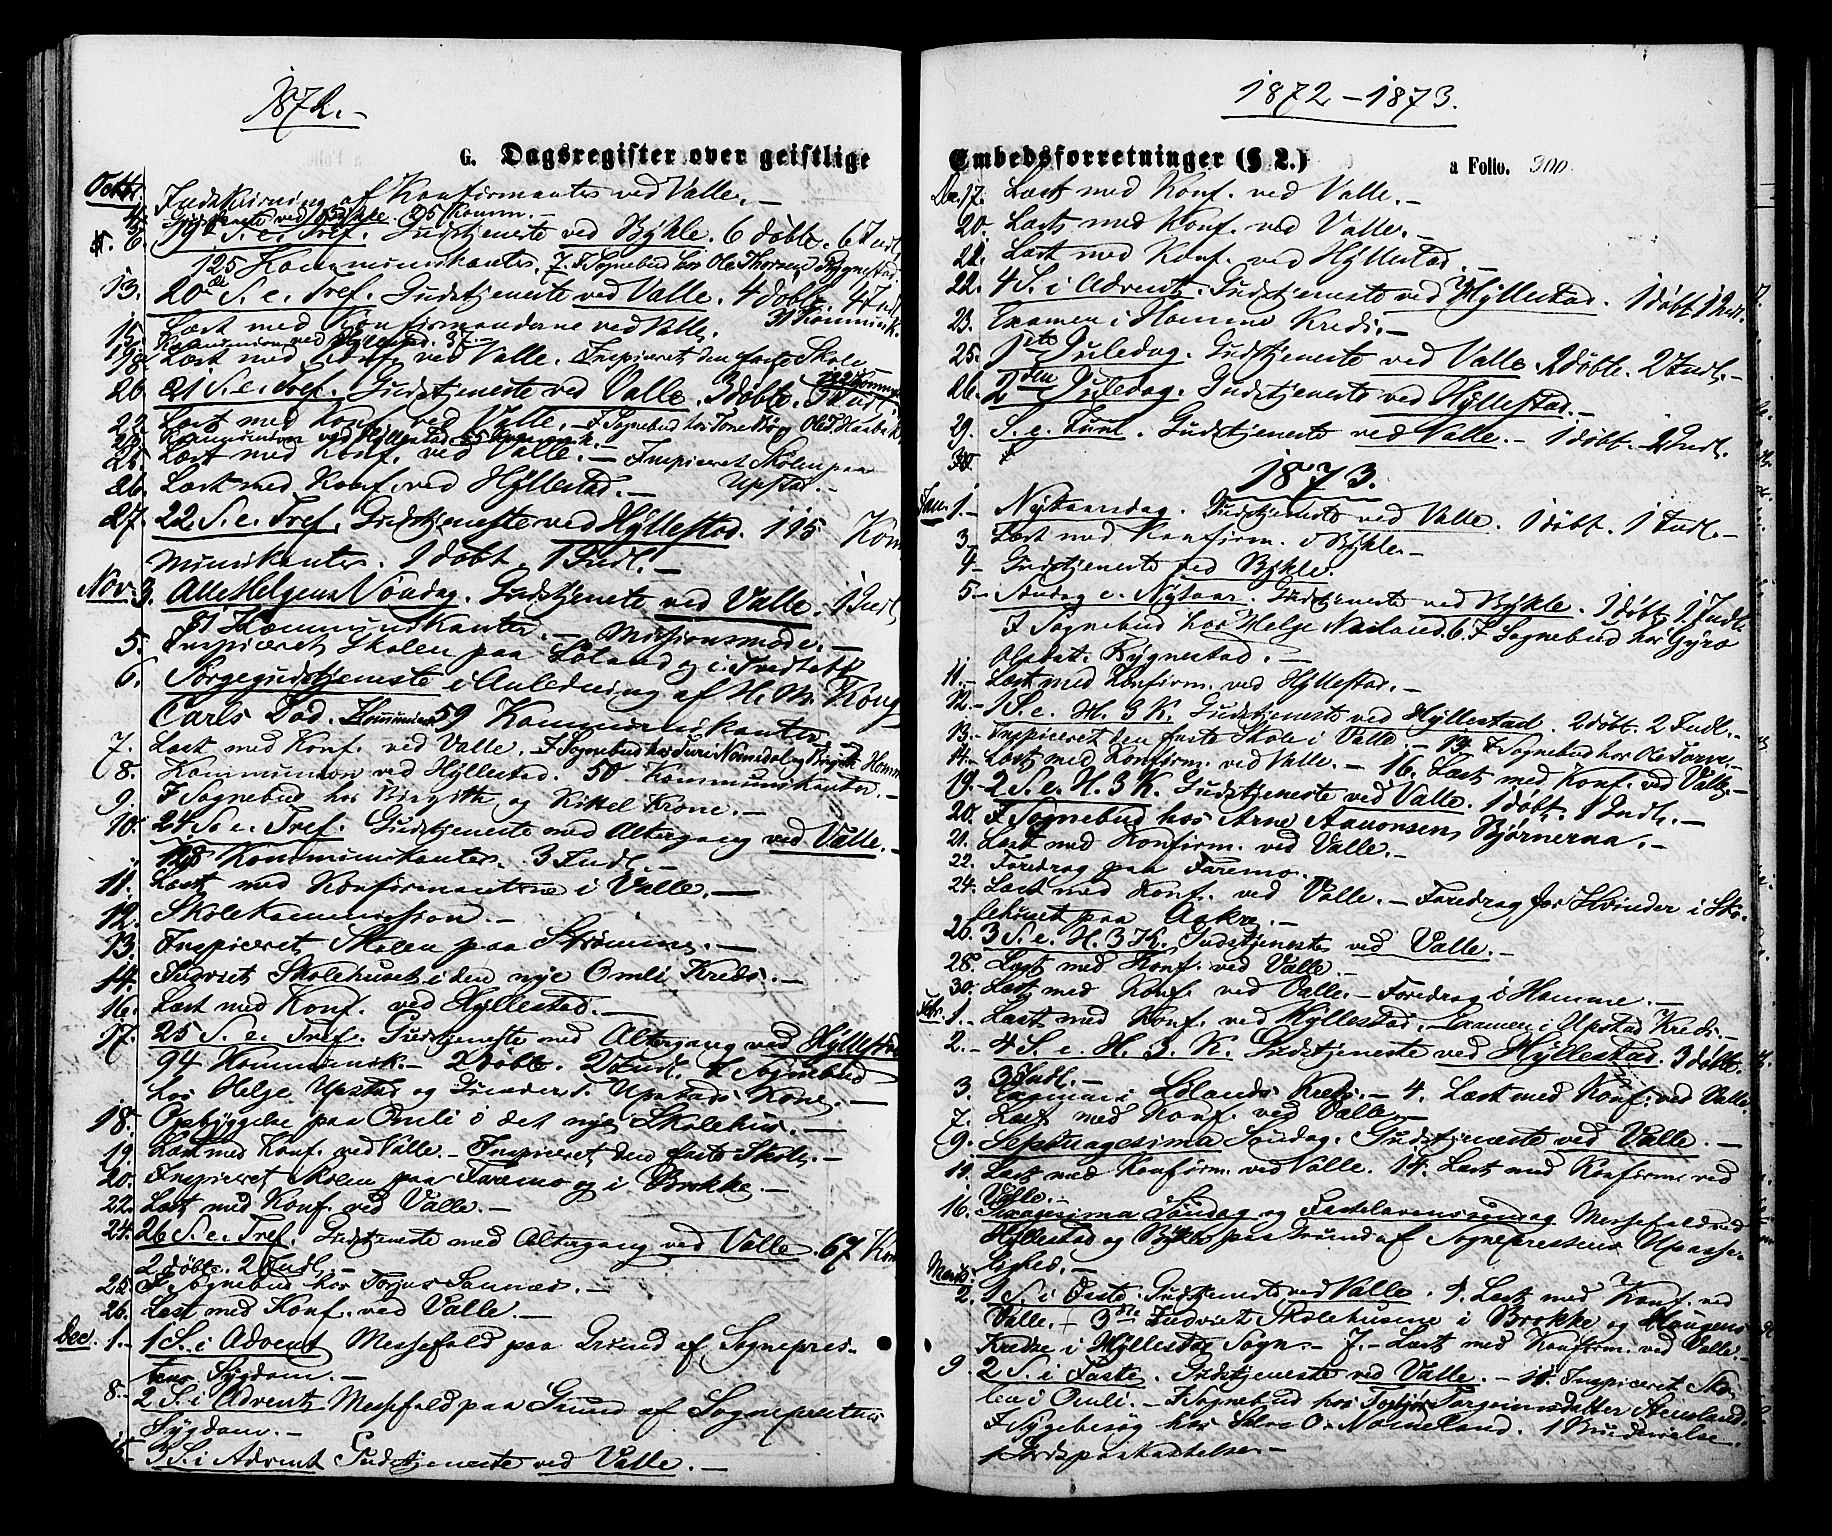 1872.-
G. Dagsregister over geistlige
Octbr. Indskrivning af Konfirmanter ved Valle.-
4. Gudstjeneste ved Bykle. 25 Komm.-
6. 19de S. e. Tref. Gudstjeneste ved Bykle. 6 døbte. 6 Indl.
125 Kommunikanter. 7. I Sognebud hos Ole Thorsen Rygnestad.
13. 20de S. e. Tref. Gudstjeneste ved Valle. 4 døbte. 4 Indl.
31 Kommunik.
15. Læst med Konfirmanterne ved Valle.
Kommunion ved Hyllestad. 37.-
19. Læst med Konf. ved Valle. Inspiceret den faste Skole
20. 21 S. e. Tref. Gudstjeneste ved Valle. 3 døbte. 3 Indl.
22. Læst med Konf. ved Valle.- I Sognebud hos Tone og Ole
24. Kommunion ved Hyllestad 55 Kommunik.-
25. Læst med Konf. ved Valle.- Inspiceret Skolen paa
Upstad.-
26. Læst med Konf. ved Hyllestad.-
27. 22 S. e. Tref. Gudstjeneste ved Hyllestad. 115 Kom
munikanter. 1 døbt. 1 Indl.-
Nov. 3. Alle Helgens Søndag. Gudstjeneste ved Valle. 1 Indl.
81 Kommunikanter.- Missionsmøde.-
5. Inspiceret Skolen paa Løland og i Tvedtebø
6. Sørgegudstjeneste i Anledning af H. M. Kong
Carls Død. 59 Kommunikanter.-
7. Læst med Konf. ved Valle. I Sognebud hos Nomedal og
8. Kommunion ved Hyllestad. 50 Kommunikanter.-
9. I Sognebud hos Birgitte og Kittel Krone.-
10. 24 S. e. Tref. Gudstjeneste med Altergang ved Valle.-
128 Kommunikanter. 3 Indl.-
11. Læst med Konfirmanterne i Valle.-
12. Skolekommission.-
13. Inspiceret Skolen paa Strømme.-
14. Indviet Skolehuset i den nye Omli Kreds.-
16. Læst med Konf. ved Hyllestad.-
17. 25 S. e. Tref. Gudstjeneste med Altergang ved Hyllestad
94 Kommunik.- 2 døbte. 2 Indl. I Sognebud
hos Helge Upstad og Gunder T. Upstads Kone.-
18. Opbyggelse paa Omli i det nye Skolehus.-
19. Læst med Konf. ved Valle.- Inspiceret den faste Skole.-
20. Inspiceret Skolen paa Faremo og i Brokke.-
22. Læst med Konf. ved Valle.-
24. 26 S. e. Tref. Gudstjeneste med Altergang ved Valle. 67 Kom
2 døbte. 2 Indl.-
25. I Sognebud hos Torjus Sannæs.-
26. Læst med Konf. ved Valle.-
Dec. 1. 1 S. i Advent Messefald paa Grund af Sognepres-
tens Sygdom.-
8. 2 S. i Advent Messefald paa Grund af Sogneprestens
Sygdom.-
15. 3 S. i Advent Gudstjeneste ved Valle.-
1872-1873.
Embedsforretninger (§ 2.)
a Folio. 300.
Dec. 17. Læst med Konf. ved Valle.-
20. Læst med Konf. ved Valle.-
21. Læst med Konf. ved Hyllestad.-
22. 4 S. i Advent. Gudstjeneste ved Hyllestad. 1 døbt. 1 Indl.
23. Examen i Homme Kreds.-
25. 1ste Juledag. Gudstjeneste ved Valle. 2 døbte. 2 Indl.-
26. 2den Juledag. Gudstjeneste ved Hyllestad.-
29. S. e. Juul. Gudstjeneste ved Valle.- 1 døbt. 2 Indl.
30
1873.
Jan. 1.- Nytaarsdag. Gudstjeneste ved Valle. 1 døbt. 1 Indl.-
3.- Læst med Konfirm. i Bykle.-
4- Gudstjeneste ved Bykle.
5.- Søndag e. Nytaar. Gudstjeneste ved Bykle. 1 døbt. 1 Indl.
I Sognebud hos Helge Nesland. 6. I Sognebud hos Gyro
Olsdat. Rygnestad.-
11.- Læst med Konfirm. ved Hyllestad.-
12.- 1 S. e. H. 3 K. Gudstjeneste ved Hyllestad. 2 døbt. 2 Indl.-
13.- Inspiceret den faste Skole i Valle.- 13. I Sognebud hos Ole
14.- Læst med Konfirm. ved Valle.- 16. Læst med Konf. ved Valle.-
19. 2 S. e. H. 3 K. Gudstjeneste ved Valle. 1 døbt. 1 Indl.-
20. I Sognebud hos Arne Aanonsen Bjørnerna.-
21. Læst med Konfirm. ved Valle.-
22. Foredrag paa Faremo.
24. Læst med Konf. ved Valle.- Foredrag for Kvinder i Sko-
lehuset paa Aakre.-
26. 3 S. e. H. 3 K. Gudstjeneste ved Valle.-
28. Læst med Konf. ved Valle.-
30. Læst med Konf. ved Valle.- Foredrag i Homme.-
Febr. 1.- Læst med Konf. ved Hyllestad. Examen i Upstad Kreds.-
2.- 4 S. e. H. 3. K. Gudstjeneste ved Hyllestad. 3 døbte.
3 Indl.-
3. Examen i Lølands Kreds.- 4. Læst med Konf. ved Valle
7. Læst med Konf. ved Valle.-
9. Septuagesima Søndag. Gudstjeneste ved Valle.-
11. Læst med Konfirm. ved Valle. 14. Læst med Konfirm. ved
Valle.-
16. Sexagesima Søndag og Fastelavenssøndag Messefald ved
Hyllestad og Bykle paa Grund af Sogneprestens Upasse-
lighed.-
Marts 2. 1 S. i Faste. Gudstjeneste ved Valle. 4. Læst med Konf. ved
Valle.- Indviet Skolehusene i Brokke og Haugens
Kredse i Hyllestad Sogn.- 7.- Læst med Konfirm. ved Valle.-
9 2 S. i Faste. Gudstjeneste ved Valle.- 11. Inspiceret Sko-
len i Omli.- I Sognebud hos Torgrimsdatter
I Sygebesøg hos Salve O. Nomeland. 1 Brudevielse.
1 Jordspaakastelse.-